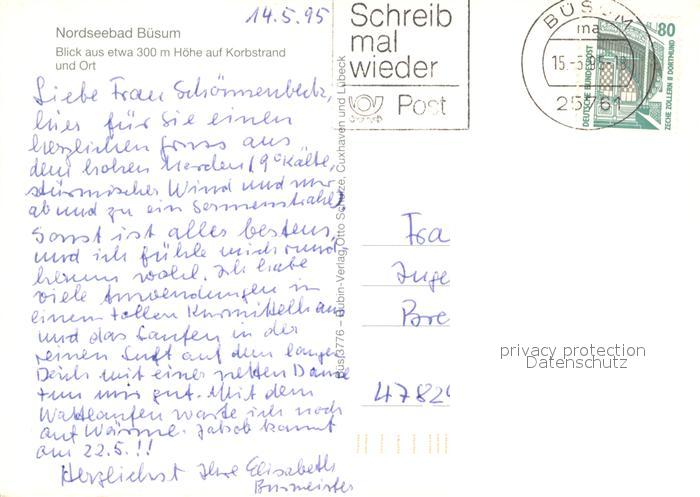 14.5.95
Nordseebad Büsum
Blick aus etwa 300 m Höhe auf Korbstrand
und Ort
Liebe Frau Schönnenbeck,
hier für Sie einen
herzlichen Gruss aus
dem hohen Norden (9° Kälte,
stürmischer Wind und nur
ab und zu ein Sonnenstrahl)
Sonst ist alles bestens,
und ich fühle mich rund
herum wohl. Ich habe
viele Anwendungen in
einem tollen Kurmittelhaus
und das Laufen in der
reinen Luft auf dem langen
Deich mit einer netten Dame
tun mir gut. Mit dem
Wattlaufen warte ich noch
auf Wärme. Jakob kommt
am 22.5.!!
Herzlichst Ihre Elisabeth
Burmeister
Büs 3776 – Rubin-Verlag, Otto Schulze, Cuxhaven und Lübeck
Schreib
mal
wieder
Post
BÜSUM
ma
15.-5.95-18
25761
80
DEUTSCHE BUNDESPOST
ZECHE ZOLLERN II DORTMUND
Fra
Inge
Bre
4782
privacy protection
Datenschutz